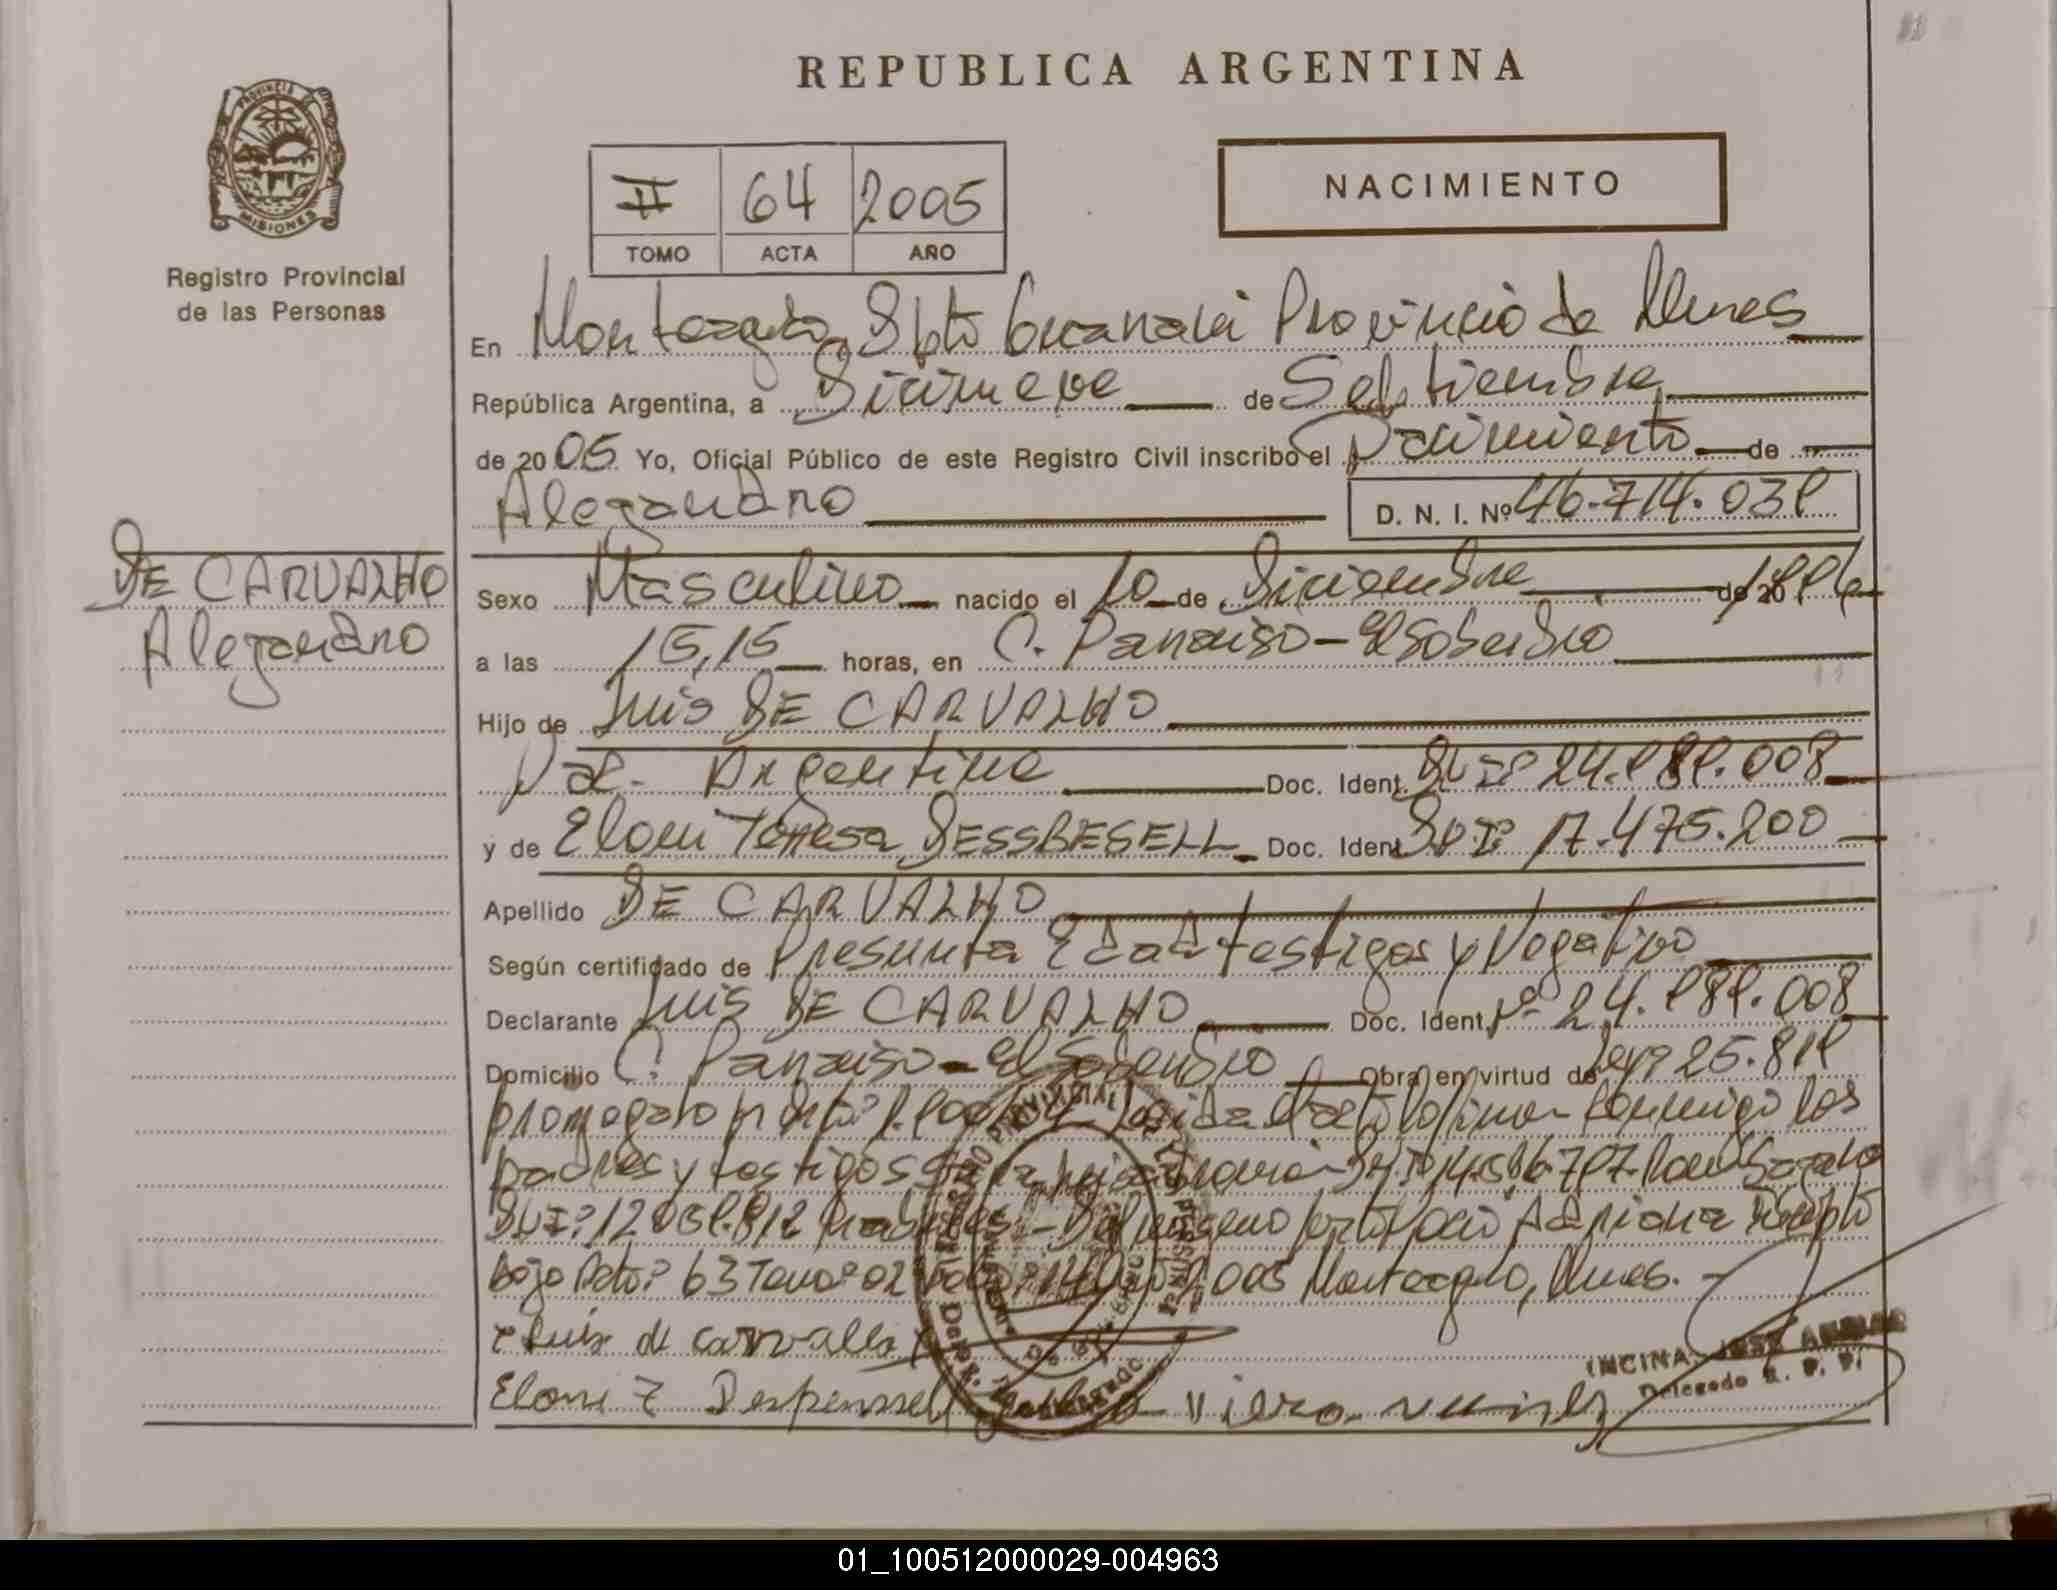 REPUBLICA ARGENTINA
PROVINCIA DE MISIONES
Registro Provincial
de las Personas
II 64 2005
TOMO ACTA AÑO
NACIMIENTO
En Monteagudo Dpto Guaraní Provincia de Mnes
República Argentina, a Diecinueve de Septiembre
de 2005 Yo, Oficial Público de este Registro Civil inscribo el Nacimiento de
Alejandro
D. N. I. Nº 46.714.039
DE CARVALHO
Alejandro
Sexo Masculino nacido el 10 de Diciembre de 20 1996
a las 15,15 horas, en C. Paraiso - El Soberbio
Hijo de Luis DE CARVALHO
Nac. Argentina Doc. Ident. DNI: 24.989.008
y de Eloni Teresa DESSBESELL Doc. Ident. DNI: 17.475.200
Apellido DE CARVALHO
Según certificado de Presunta Edad testigos y Negativo
Declarante Luis DE CARVALHO Doc. Ident. Nº 24.989.008
Domicilio C. Paraiso - El Soberbio Obra en virtud de Ley 25.819
Leida el acta la firman conmigo los
padres y testigos
bajo Acta: 63 Tomo: 02 2005 Monteagudo, Mnes.
Luis de carvallo
Eloni T
ENCINA, JOSE
Delegado R. P. P.
01_100512000029-004963